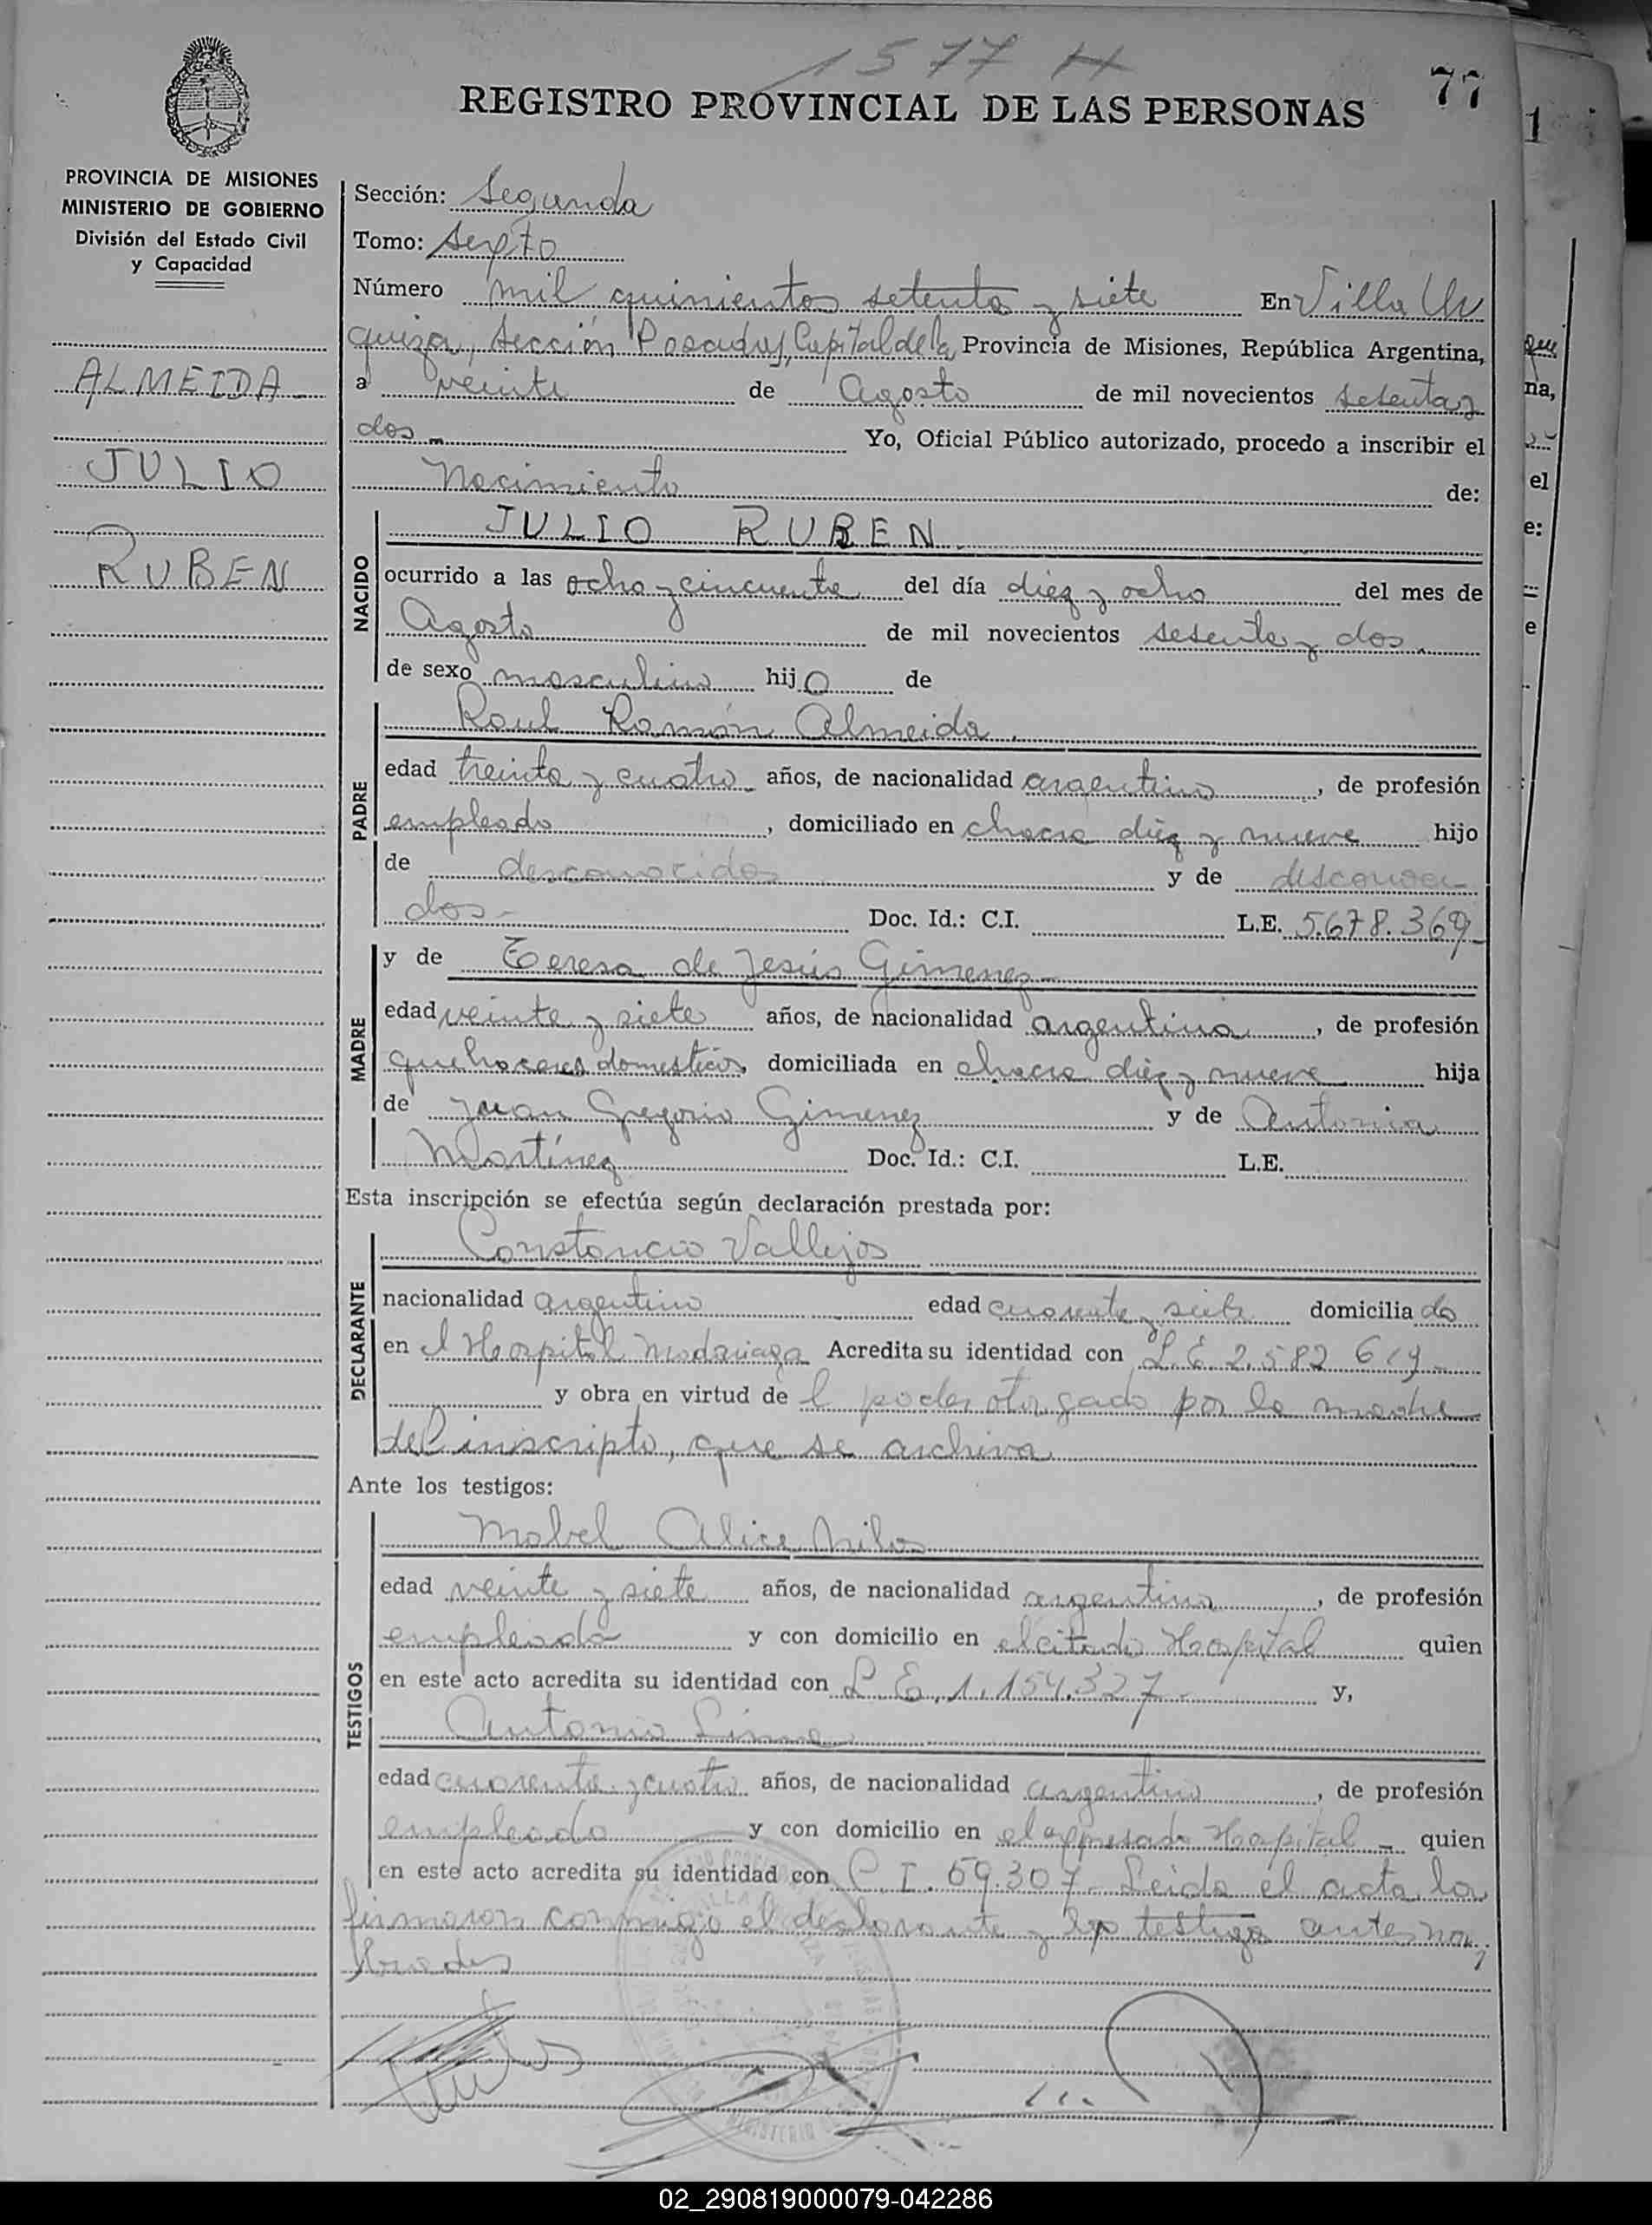 1577 H
77
REGISTRO PROVINCIAL DE LAS PERSONAS
PROVINCIA DE MISIONES
MINISTERIO DE GOBIERNO
División del Estado Civil
y Capacidad
ALMEIDA
JULIO
RUBEN
Sección: Segunda
Tomo: Sexto
Número mil quinientos setenta y siete En Villa Ur
quiza, Sección Posadas, Capital de la Provincia de Misiones, República Argentina,
a veinte de Agosto de mil novecientos setenta y
dos Yo, Oficial Público autorizado, procedo a inscribir el
Nacimiento de:
NACIDO
JULIO RUBEN
ocurrido a las ocho y cincuenta del día diez y ocho del mes de
Agosto de mil novecientos setenta y dos
de sexo masculino hijo de
PADRE
Raul Ramón Almeida.
edad treinta y cuatro años, de nacionalidad argentino, de profesión
empleado, domiciliado en chacra diez y nueve hijo
de desconocidos y de desconoci
dos Doc. Id.: C.I. L.E. 5.678.369
MADRE
y de Teresa de Jesús Gimenez
edad veinte y siete años, de nacionalidad argentina, de profesión
quehaceres domesticos domiciliada en chacra diez y nueve hija
de Juan Gregorio Gimenez y de Antonia
Martínez Doc. Id.: C.I. L.E.
Esta inscripción se efectúa según declaración prestada por:
DECLARANTE
Constancio Vallejos
nacionalidad argentino edad cuarenta y siete domiciliado
en el Hospital Madariaga Acredita su identidad con L.E. 2.582.619
y obra en virtud del poder otorgado por la madre
del inscripto, que se archiva
Ante los testigos:
TESTIGOS
Mabel Alice
edad veinte y siete años, de nacionalidad argentina, de profesión
empleada y con domicilio en el citado Hospital quien
en este acto acredita su identidad con L.E. 1.154.327 y,
Antonio
edad cuarenta y cuatro años, de nacionalidad argentino, de profesión
empleado y con domicilio en el expresado Hospital quien
en este acto acredita su identidad con C.I. 69.307 Leida el acta la
firmaron conmigo el declarante y los testigos antes nom
brados
02_290819000079-042286